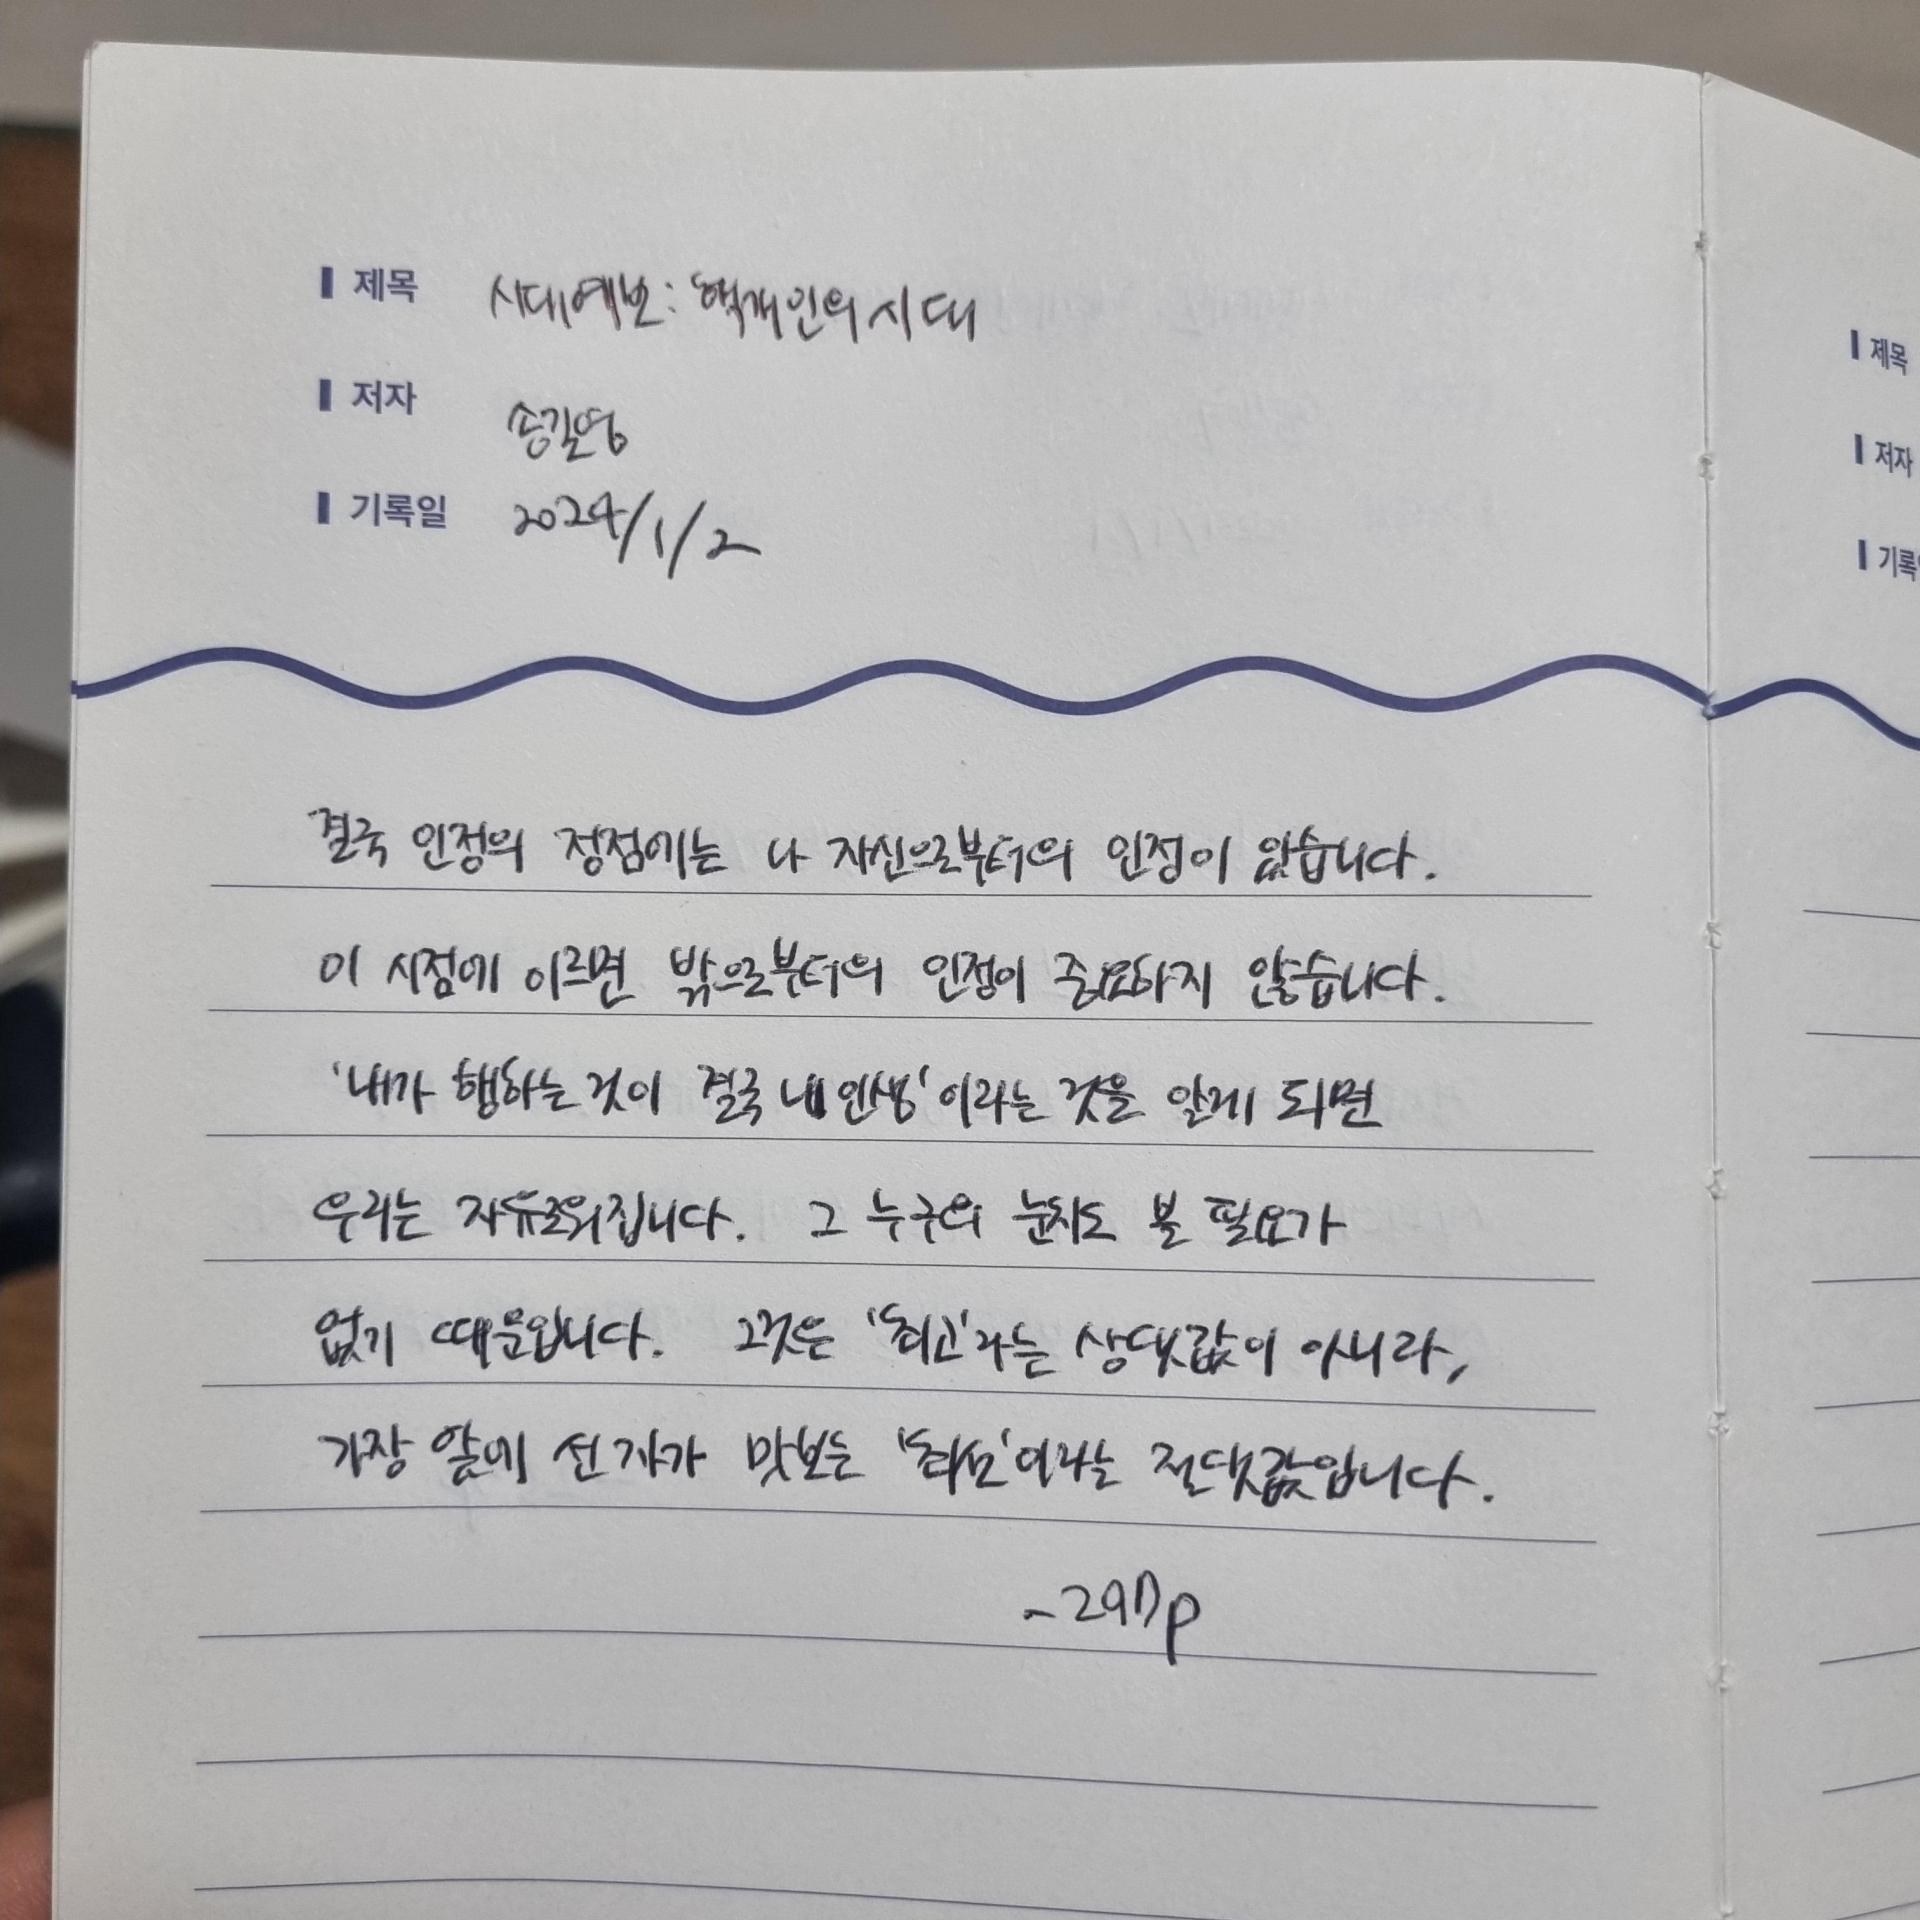 제목 시대예보: 핵개인의 시대
저자 송길영
기록일 2024/1/2
결국 인정의 정점에는 나 자신으로부터의 인정이 있습니다.
이 시점에 이르면 밖으로부터의 인정이 중요하지 않습니다.
'내가 행하는 것이 결국 내 인생'이라는 것을 알게 되면
우리는 자유로워집니다. 그 누구의 눈치도 볼 필요가
없기 때문입니다. 그것은 '최고'라는 상댓값이 아니라,
가장 앞에 선 자가 맛보는 '최초'이라는 절댓값입니다.
-297p
제목
저자